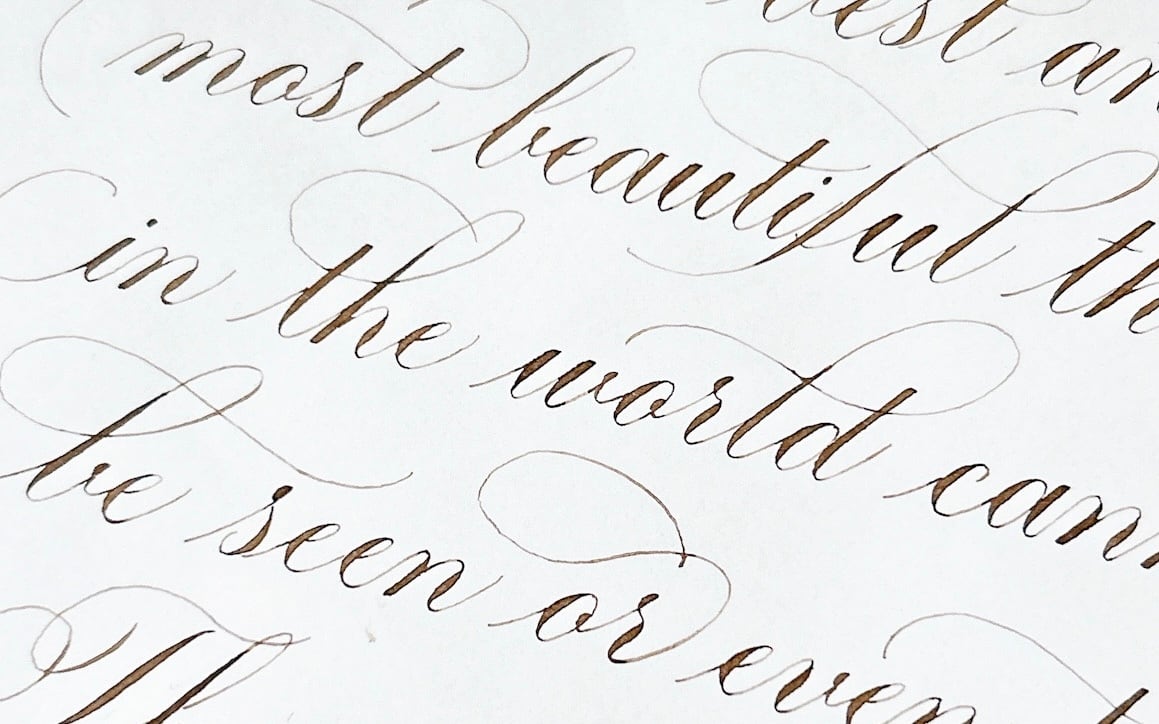 est an
most beautiful th
in the world cann
be seen or even t
Th